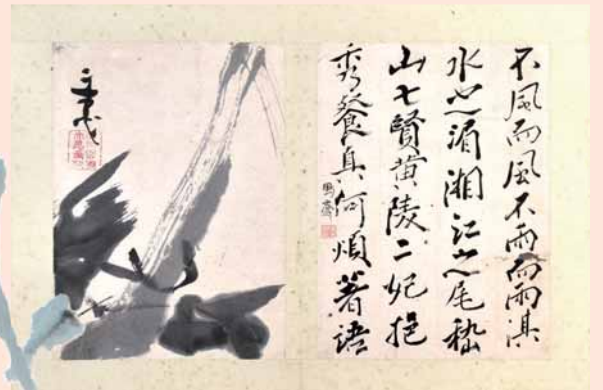 不風而風不雨而雨淇
水之湄湘江之尾嵇
山七賢黄陵二妃挹
秀餐真何煩著語